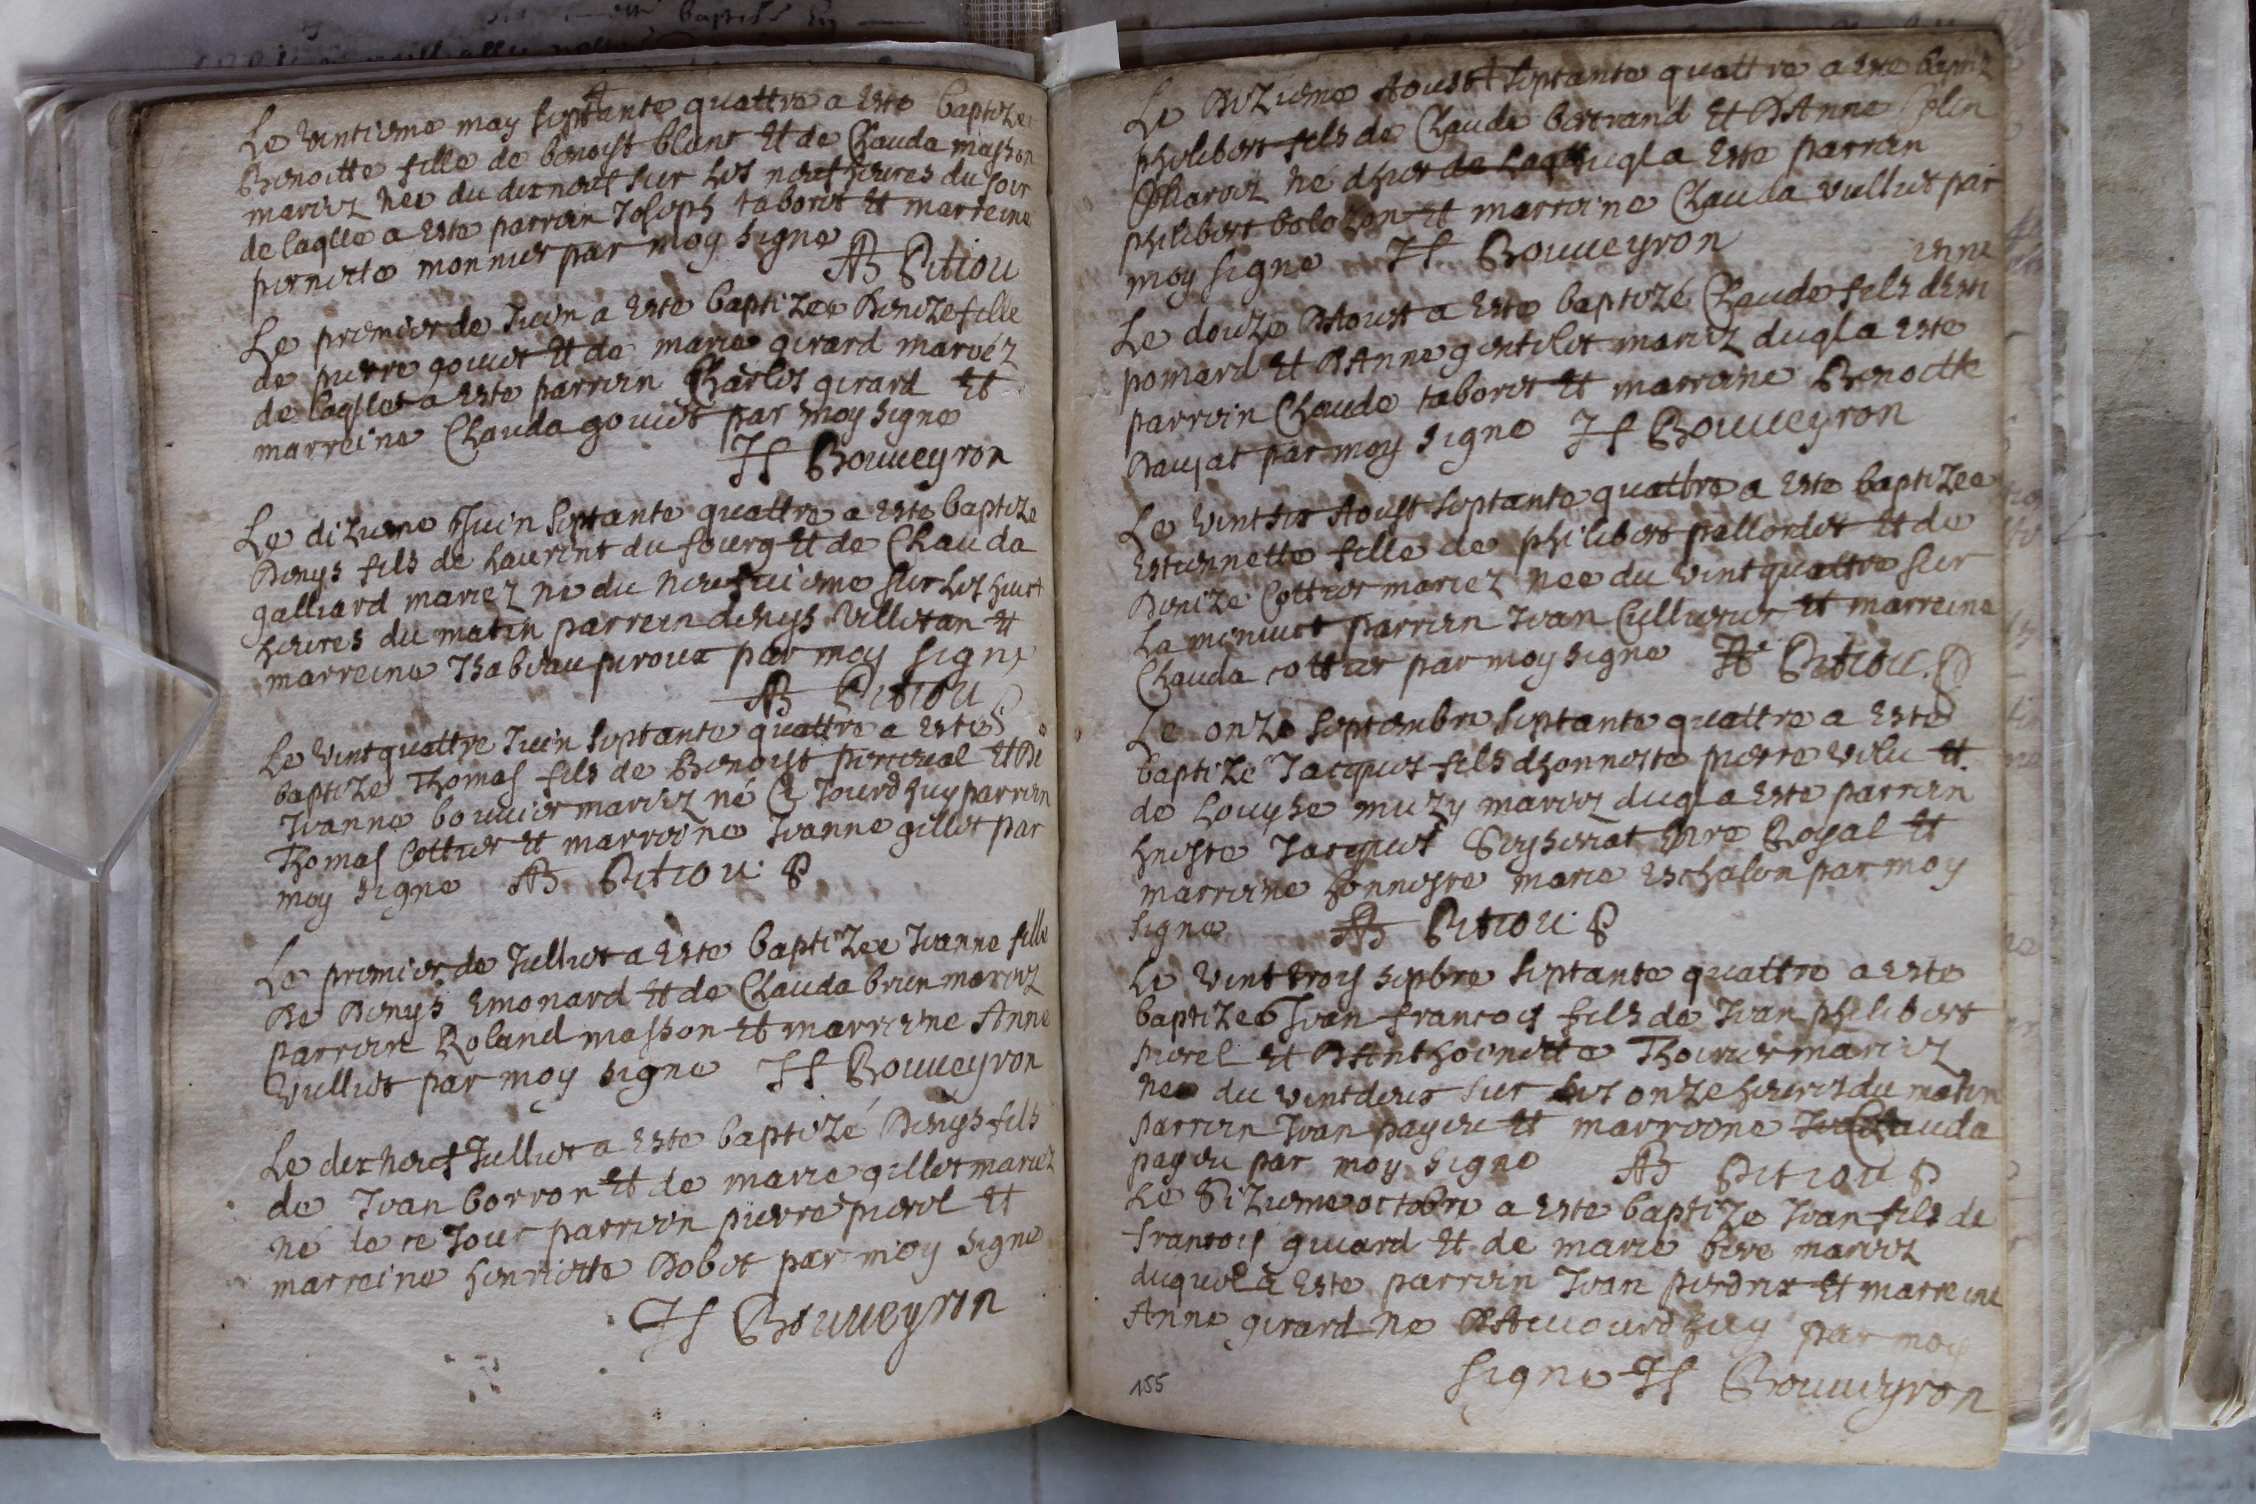 Le vintiesme may septante quattre a este baptizee
Benoitte fille de benoist blanc et de Clauda masson
mariez nee du dixneuf sur les neuf heures du soir
de laqlle a este parrein Joseph taboret et marreine
pernette monnier par moy signe
AB Petiou
Le premier de Juin a este baptizee Denize fille
de pierre gouiet et de marie girard mariéz
de laqlle a este parrein Charles girard et
marreine Clauda gouiet par moy signe
Jf Bouueyron
Le dizieme Juin septante quattre a este baptize
Denys fils de laurent du fourg et de Clauda
galliard mariez né du neufuieme sur les huict
heures du matin parrein denys Villetan et
marreine Thabiau peroux par moy signe
AB Petiou
Le vintquattre Juin septante quattre a este
baptize Thomas fils de Benoist perceval et de
Jeanne bouuier mariez né Ce Jourdhuy parrein
Thomas Cottier et marreine Jeanne gillet par
moy signe AB Petiou
Le premier de Julliet a este baptizee Jeanne fille
De Denys Emonard et de Clauda brun mariez
parrein Roland masson et marreine Anne
Vulliet par moy signe Jf Bouueyron
Le dixneuf Julliet a este baptizé Denys fils
de Jean borron et de marie gillet mariez
né le ce Jour parrein pierre perel et
marreine henriette Bobet par moy signe
Jf Bouueyron
Le Dizieme Aoust septante quattre a este baptizé
philibert fils de Claude bertrand et D'Anne
mariez né dhier de laqlle duql a este parrein
philibert bolozon et marreine Clauda vulliet par
moy signe Jf Bouueyron
Le douze D'Aoust a este baptizé Claude fils d'Esti
enne
pomard et D'Anne gentilet mariez duql a este
parrein Claude taboret et marreine Benoitte
Daujat par moy signe Jf Bouueyron
Le vintsix Aoust septante quattre a este baptizee
Estiennette fille de philibert pellordet et de
Denize Cottier mariez nee du vintquattre sur
La menuict parrein Jean Cullierier et marreine
Clauda cottier par moy signe AB Petiou
Le onze septembre septante quattre a este
baptize Jacques fils d'honneste pierre velu et
de Louyse muzy mariez duql a este parrein
hneste Jacques Seyseriat Nre Royal et
marreine honneste marie Eschalon par moy
signe AB Petiou
Le vint troys sepbre septante quattre a este
baptize Jean francois fils de Jean philibert
perel et D'Anthoinette Thorier mariez
né du vintdeux sur les onze heures du matin
parrein Jean payeu et marreine Clauda
payeu par moy signe AB Petiou
Le Sizieme octobre a este baptize Jean fils de
francois guard et de marie bere mariez
duquel a este parrein Jean perdrix et marreine
Anne girard né D'Auiourdhuy par moy
signe Jf Bouueyron
155